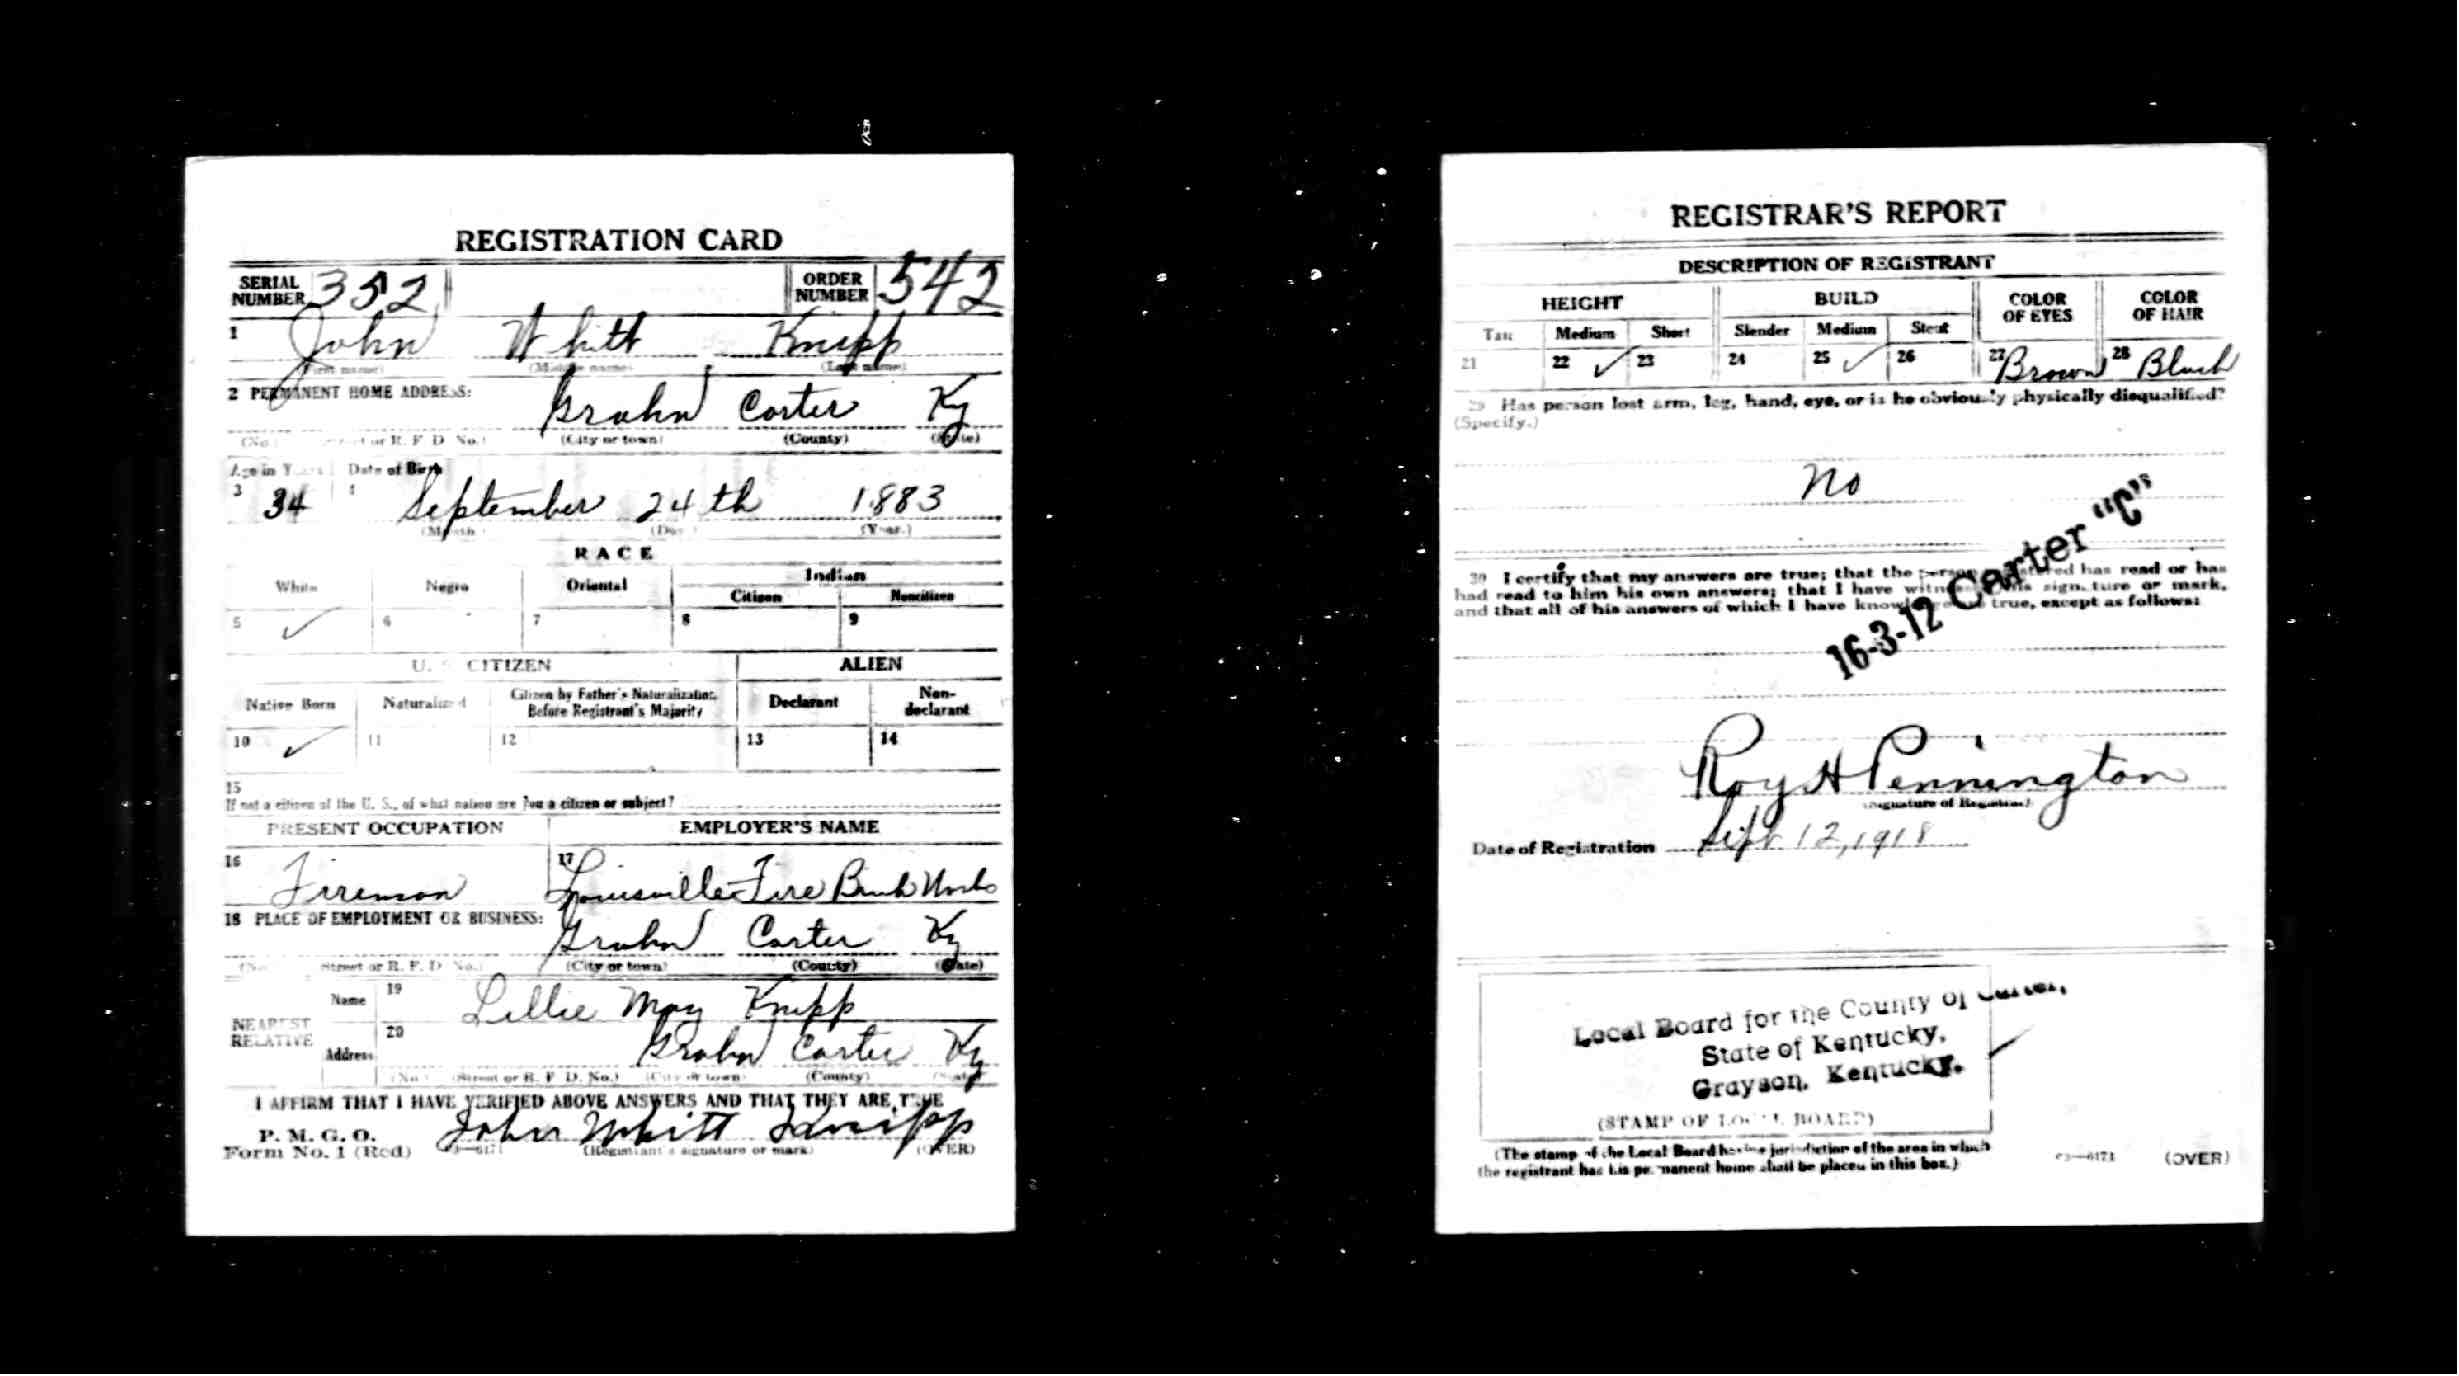 REGISTRATION CARD
SERIAL NUMBER 352 ORDER NUMBER 542
1 John Whitt Knipp
(First name) (Middle name) (Last name)
2 PERMANENT HOME ADDRESS: Grahn Carter Ky
(No.) (Street or R. F. D. No.) (City or town) (County) (State)
Age in Years Date of Birth
3 34 4 September 24th 1883
(Month) (Day) (Year.)
RACE
White Negro Oriental Indian
Citizen Noncitizen
5 ✓ 6 7 8 9
U. S. CITIZEN ALIEN
Native Born Naturalized Citizen by Father's Naturalization Before Registrant's Majority Declarant Non-declarant
10 ✓ 11 12 13 14
15
If not a citizen of the U. S., of what nation are you a citizen or subject?
PRESENT OCCUPATION EMPLOYER'S NAME
16 Fireman 17 Louisville Fire Brick Works
18 PLACE OF EMPLOYMENT OR BUSINESS: Grahn Carter Ky
(No.) Street or R. F. D. No.) (City or town) (County) (State)
NEAREST RELATIVE
Name 19 Lillie May Knipp
Address 20 Grahn Carter Ky
(No.) (Street or R. F. D. No.) (City or town) (County) (State)
I AFFIRM THAT I HAVE VERIFIED ABOVE ANSWERS AND THAT THEY ARE TRUE
P. M. G. O.
Form No. 1 (Red) John Whitt Knipp
(Registrant's signature or mark) (OVER)
REGISTRAR'S REPORT
DESCRIPTION OF REGISTRANT
HEIGHT BUILD COLOR OF EYES COLOR OF HAIR
Tall Medium Short Slender Medium Stout
21 22 ✓ 23 24 25 ✓ 26 27 Brown 28 Black
29 Has person lost arm, leg, hand, eye, or is he obviously physically disqualified?
(Specify.)
No
30 I certify that my answers are true; that the person registered has read or has
had read to him his own answers; that I have witnessed his signature or mark,
and that all of his answers of which I have knowledge are true, except as follows:
16-3-12 Carter "C"
Roy H Pennington
(Signature of Registrar)
Date of Registration Sept 12, 1918
Local Board for the County of Carter,
State of Kentucky,
Grayson, Kentucky.
(STAMP OF LOCAL BOARD)
(The stamp of the Local Board having jurisdiction of the area in which
the registrant has his permanent home shall be placed in this box.)
03—6171 (OVER)